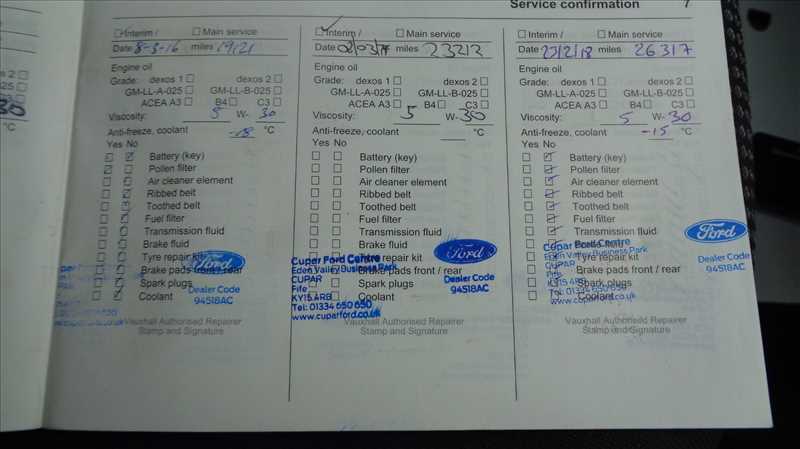 Service confirmation 7
Interim / Main service
Date 8-3-16 miles 19121
Engine oil
Grade: dexos 1 dexos 2
GM-LL-A-025 GM-LL-B-025
ACEA A3 B4 C3
Viscosity: 5 W- 30
Anti-freeze, coolant -18 °C
Yes No
Battery (key)
Pollen filter
Air cleaner element
Ribbed belt
Toothed belt
Fuel filter
Transmission fluid
Brake fluid
Tyre repair kit
Brake pads front / rear
Spark plugs
Coolant
Ford
Dealer Code
94518AC
Vauxhall Authorised Repairer
Stamp and Signature
Interim / Main service
Date 02/03/17 miles 23212
Engine oil
Grade: dexos 1 dexos 2
GM-LL-A-025 GM-LL-B-025
ACEA A3 B4 C3
Viscosity: 5 W- 30
Anti-freeze, coolant °C
Yes No
Battery (key)
Pollen filter
Air cleaner element
Ribbed belt
Toothed belt
Fuel filter
Transmission fluid
Brake fluid
Tyre repair kit
Brake pads front / rear
Spark plugs
Coolant
Cupar Ford Centre
Eden Valley Business Park
CUPAR
Fife
KY15 4RB
Tel: 01334 650 650
www.cuparford.co.uk
Ford
Dealer Code
94518AC
Vauxhall Authorised Repairer
Stamp and Signature
Interim / Main service
Date 23/2/18 miles 26317
Engine oil
Grade: dexos 1 dexos 2
GM-LL-A-025 GM-LL-B-025
ACEA A3 B4 C3
Viscosity: 5 W- 30
Anti-freeze, coolant -15 °C
Yes No
Battery (key)
Pollen filter
Air cleaner element
Ribbed belt
Toothed belt
Fuel filter
Transmission fluid
Brake fluid
Tyre repair kit
Brake pads front / rear
Spark plugs
Coolant
Cupar Ford Centre
Eden Valley Business Park
CUPAR
Fife
KY15 4RB
Tel: 01334 650 650
www.cuparford.co.uk
Ford
Dealer Code
94518AC
Vauxhall Authorised Repairer
Stamp and Signature